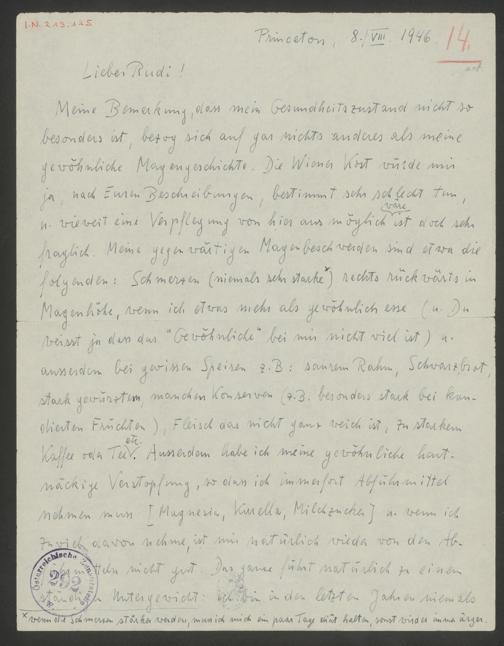 I.N. 213.125
Princeton, 8./VIII. 1946.
14.
Lieber Rudi!
Meine Bemerkung, dass mein Gesundheitszustand nicht so
besonders ist, bezog sich auf gar nichts anderes als meine
gewöhnliche Magengeschichte. Die Wiener Kost würde mir
ja, nach Euren Beschreibungen, bestimmt sehr schlecht tun,
u. wieweit eine Verpflegung von hier aus möglich ist wäre doch sehr
fraglich. Meine gegenwärtigen Magenbeschwerden sind etwa die
folgenden: Schmerzen (niemals sehr starke*) rechts rückwärts in
Magenhöhe, wenn ich etwas mehr als gewöhnlich esse (u. Du
weisst ja dass das "Gewöhnliche" bei mir nicht viel ist) u.
ausserdem bei gewissen Speisen z.B: saurem Rahm, Schwarzbrot,
stark gewürztem, manchen Konserven (z.B. besonders stark bei kan-
dierten Früchten), Fleisch das nicht ganz weich ist, zu starkem
Kaffee oder Tee etc. Ausserdem habe ich meine gewöhnliche hart-
näckige Verstopfung, so dass ich immerfort Abführmittel
nehmen muss [Magnesia, Kurella, Milchzucker] u. wenn ich
zuviel davon nehme, ist mir natürlich wieder von den Ab-
nicht gut. Das ganze führt natürlich zu einem
Untergewicht: ich bin in den letzten Jahren niemals
* wenn die Schmerzen stärker werden, muss ich mich ein paar Tage diät halten, sonst wird es immer ärger.
Österreichische
282